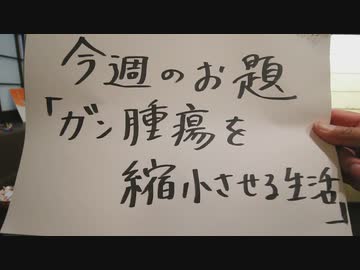 今週のお題
「ガン腫瘍を
縮小させる生活」